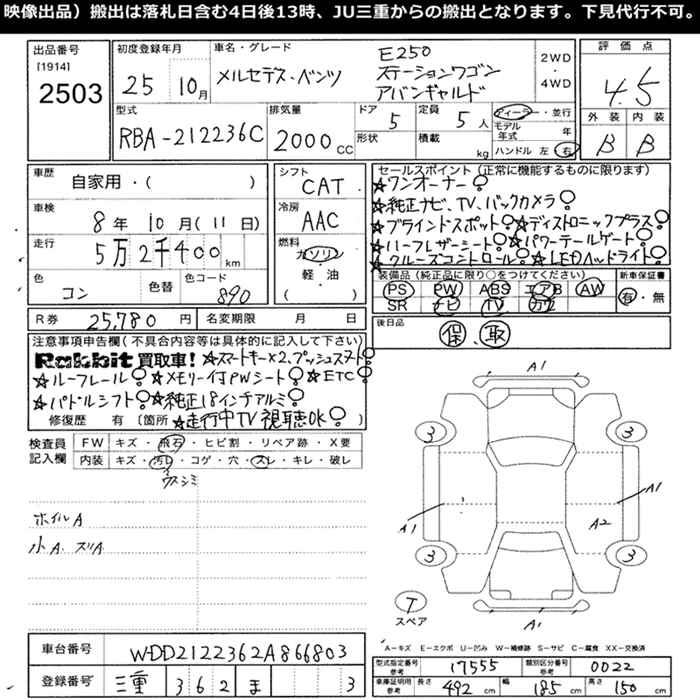 映像出品）搬出は落札日含む4日後13時、JU三重からの搬出となります。下見代行不可。
出品番号 初度登録年月 車名・グレード 評価点
[1914]
2503 25 10月 メルセデス・ベンツ E250 ステーションワゴン アバンギャルド 2WD・4WD 4.5
型式 排気量 ドア 定員 ディーラー・並行 外装 内装
RBA-212236C 2000cc 5 5人 モデル年式 年 B B
形状 積載 kg ハンドル 左 右
車歴 自家用・（ ） シフト CAT セールスポイント（正常に機能するものに限ります）
☆ワンオーナー!
車検 8年 10月（11日） 冷房 AAC ☆純正ナビ、TV、バックカメラ!
☆ブラインドスポット!☆ディストロニックプラス!
走行 5万2千400km 燃料 ガソリン・軽・油（ ） ☆ハーフレザーシート!☆パワーテールゲート!
☆クルーズコントロール!☆LEDヘッドライト!
色 コン 色替 色コード 890 装備品（純正品に限り○をつけてください） 新車保証書
PS PW ABS エアB AW 有・無
SR ナビ TV カワ
R券 25,780円 名変期限 月 日 後日品 保、取
注意事項申告欄（不具合内容等は具体的に記入して下さい）
Rabbit 買取車!☆スマートキー×2、プッシュスタート!
☆ルーフレール!☆メモリー付PWシート!☆ETC!
☆パドルシフト!☆純正18インチアルミ!
修復歴 有〔箇所 ☆走行中TV視聴OK!〕
検査員記入欄 FW キズ・飛石・ヒビ割・リペア跡・X要
内装 キズ・汚レ・コゲ・穴・スレ・キレ・破レ
ウスシミ
ホイルA
小A.スリA
A1
3 3
A1 A2 A1
3 3
T スペア
A1
A−キズ E−エクボ U−凹み W−補修跡 S−サビ C−腐食 XX−交換済
車台番号 WDD2122362A866803 型式指定番号 参考 17555 類別区分番号 参考 0022
登録番号 三重 362 ま 3 車庫証明用 参考 長さ 492cm 幅 185cm 高さ 150cm